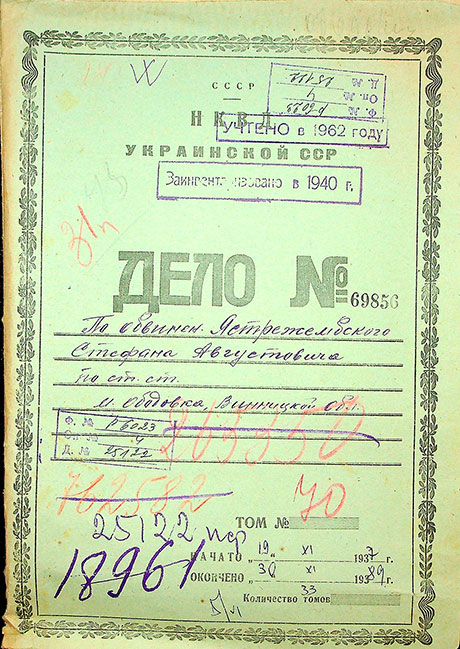 СССР
НКВД
УКРАИНСКОЙ ССР
УЧТЕНО в 1962 году
в 1940 г.
Ф. №
Оп. № 4
Д. №
31/п
ДЕЛО № 69856
По обвинен. Ястрежембского
Стефана Августовича
по ст. ст.
м. Ободовка, Винницкой обл.
Ф. № Р6023
Оп. № 4
Д. № 25122
265350
762582
70
ТОМ №
25122 пср
НАЧАТО „19“ XI 1937 г.
18961
ОКОНЧЕНО „30“ XI
Количество томов
33